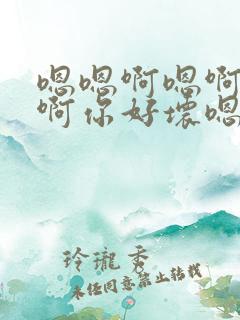 嗯嗯啊嗯啊
啊你好坏嗯
玲珑秀
未经同意禁止转载